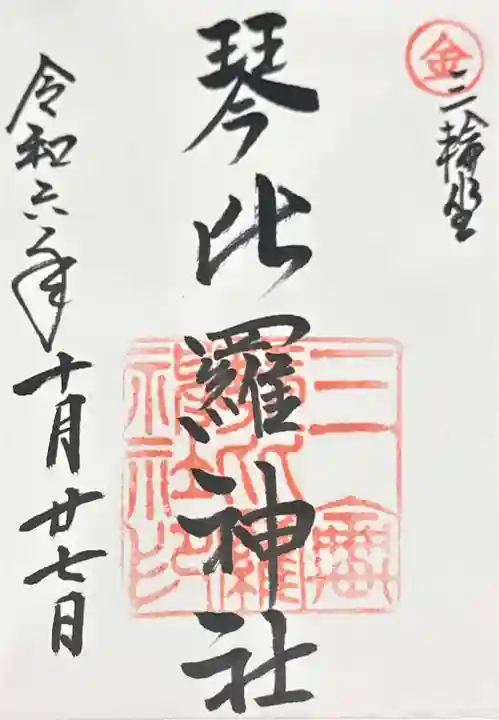 金
三輪坐
琴比羅神社
令和六年
十月廿七日